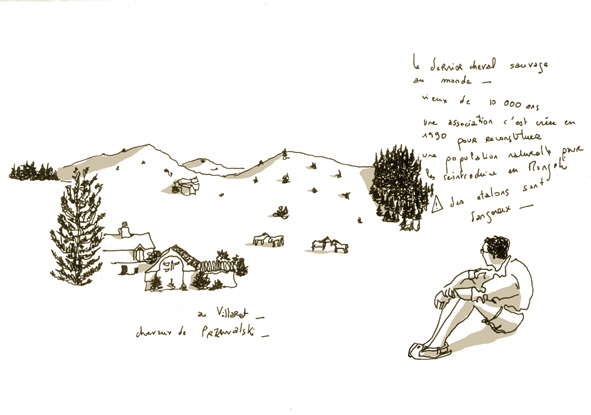 le dernier cheval sauvage
au monde —
vieux de 10 000 ans
une association c'est créée en
1990 pour reconstituer
une population naturelle pour
les reintroduire en Mongolie
des etalons sont
dangereux —
au Villaret —
chevaux de Przewalski —